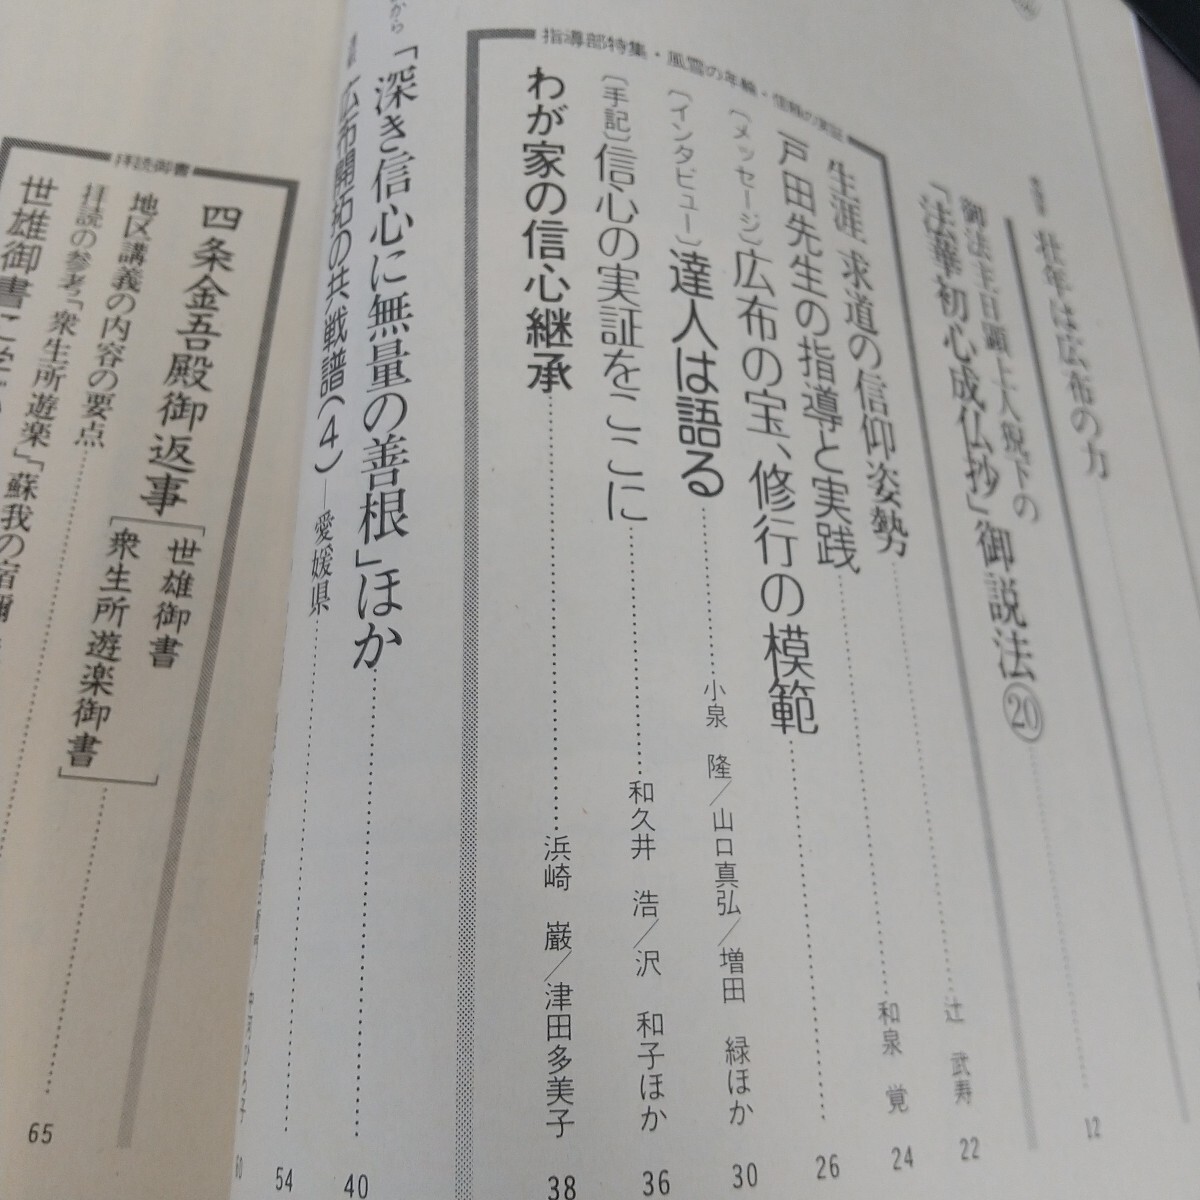 壮年は広布の力
12
御法主日顕上人猊下の
「法華初心成仏抄」御説法⑳
指導部特集・風雪の年輪・信頼の実証
生涯 求道の信仰姿勢
辻 武寿
22
戸田先生の指導と実践
和泉 覚
24
〔メッセージ〕広布の宝、修行の模範
26
〔インタビュー〕達人は語る
小泉 隆/山口真弘/増田 緑ほか
30
〔手記〕信心の実証をここに
和久井 浩/沢 和子ほか
36
わが家の信心継承
浜崎 巌/津田多美子
38
から
「深き信心に無量の善根」ほか
40
広布開拓の共戦譜(4)―愛媛県
54
60
拝読御書
四条金吾殿御返事
世雄御書
衆生所遊楽御書
地区講義の内容の要点
65
拝読の参考「衆生所遊楽」「蘇我の宿禰
世雄御書に